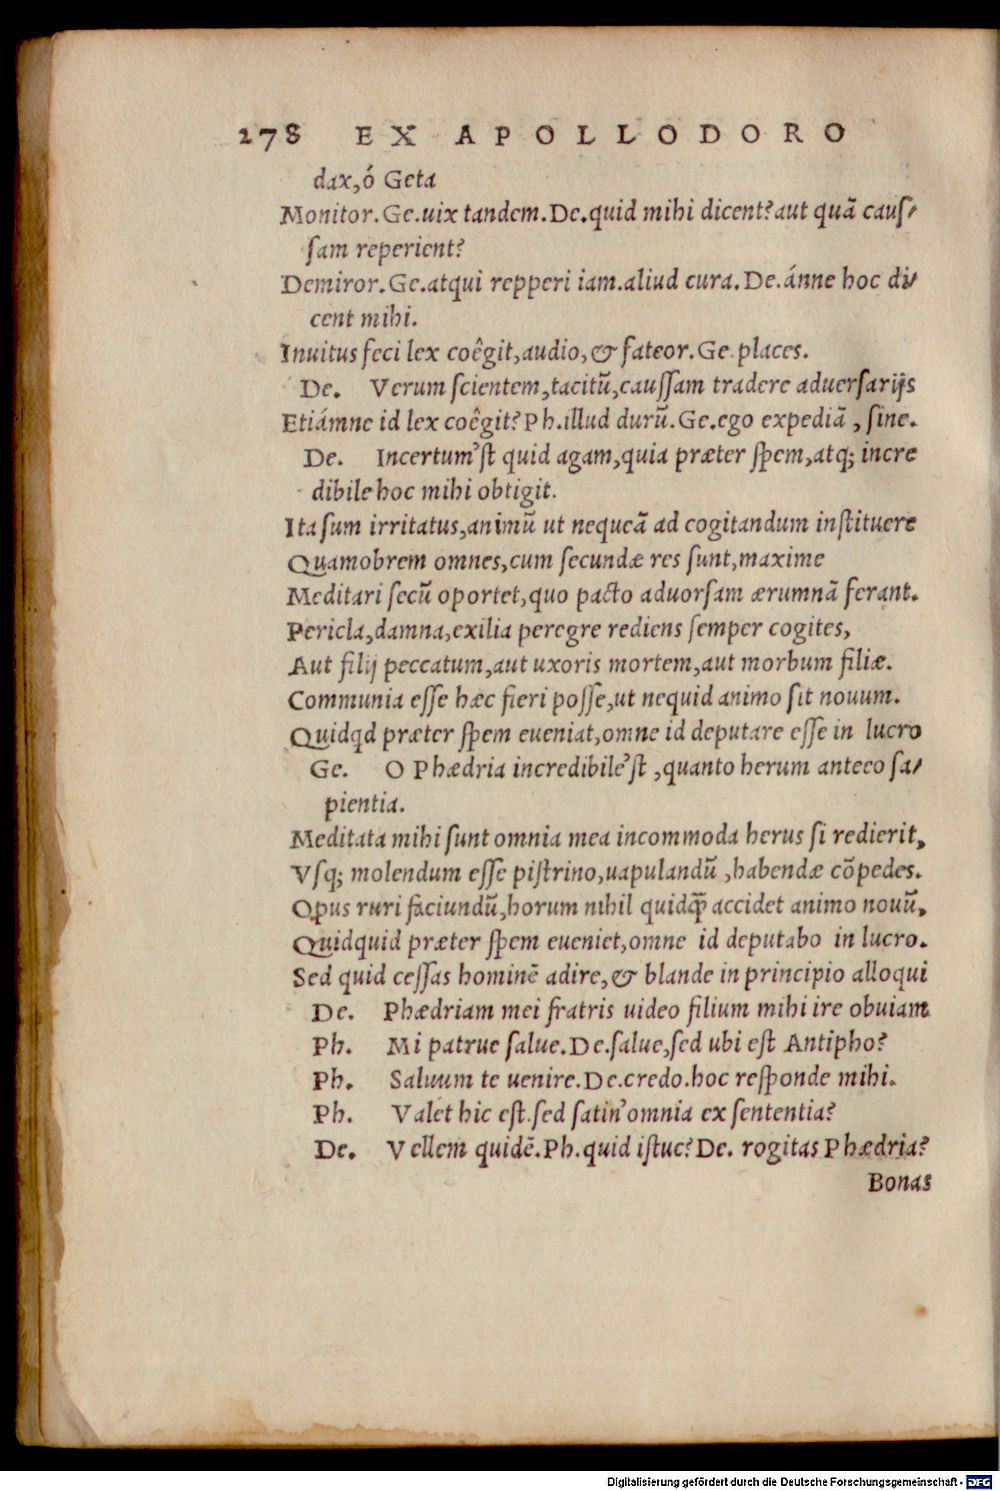 278 EX APOLLODORO
dax,ó Geta
Monitor.Ge.uix tandem.De.quid mihi dicent?aut quã causſ/
ſam reperient?
Demiror.Ge.atqui repperi iam.aliud cura.De.ánne hoc di/
cent mihi.
Inuitus feci lex coêgit,audio,& fateor.Ge.places.
De. Verum ſcientem,tacitũ,cauſſam tradere aduerſarijs
Etiámne id lex coêgit?Ph.illud durũ.Ge.ego expediã, ſine.
De. Incertum'ſt quid agam,quia præter ſpem,atq; incre
dibile hoc mihi obtigit.
Ita ſum irritatus,animũ ut nequeã ad cogitandum inſtituere
Quamobrem omnes,cum ſecundæ res ſunt,maxime
Meditari ſecũ oportet,quo pacto aduorſam ærumnã ferant.
Pericla,damna,exilia peregre rediens ſemper cogites,
Aut filij peccatum,aut uxoris mortem,aut morbum filiæ.
Communia eſſe hæc fieri poſſe,ut nequid animo ſit nouum.
Quidqd præter ſpem eueniat,omne id deputare eſſe in lucro
Ge. O Phædria incredibile'ſt ,quanto herum anteeo ſa/
pientia.
Meditata mihi ſunt omnia mea incommoda herus ſi redierit,
Vſq; molendum eſſe piſtrino,uapulandũ ,habendæ cõpedes.
Opus ruri faciundũ,horum nihil quidq̃ accidet animo nouũ,
Quidquid præter ſpem eueniet,omne id deputabo in lucro.
Sed quid ceſſas hominẽ adire,& blande in principio alloqui
De. Phædriam mei fratris uideo filium mihi ire obuiam
Ph. Mi patrue ſalue.De.ſalue,ſed ubi eſt Antipho?
Ph. Saluum te uenire.De.credo.hoc reſponde mihi.
Ph. Valet hic eſt.ſed ſatin'omnia ex ſententia?
De. Vellem quidẽ.Ph.quid iſtuc?De. rogitas Phædria?
Bonas
Digitalisierung gefördert durch die Deutsche Forschungsgemeinschaft - DFG